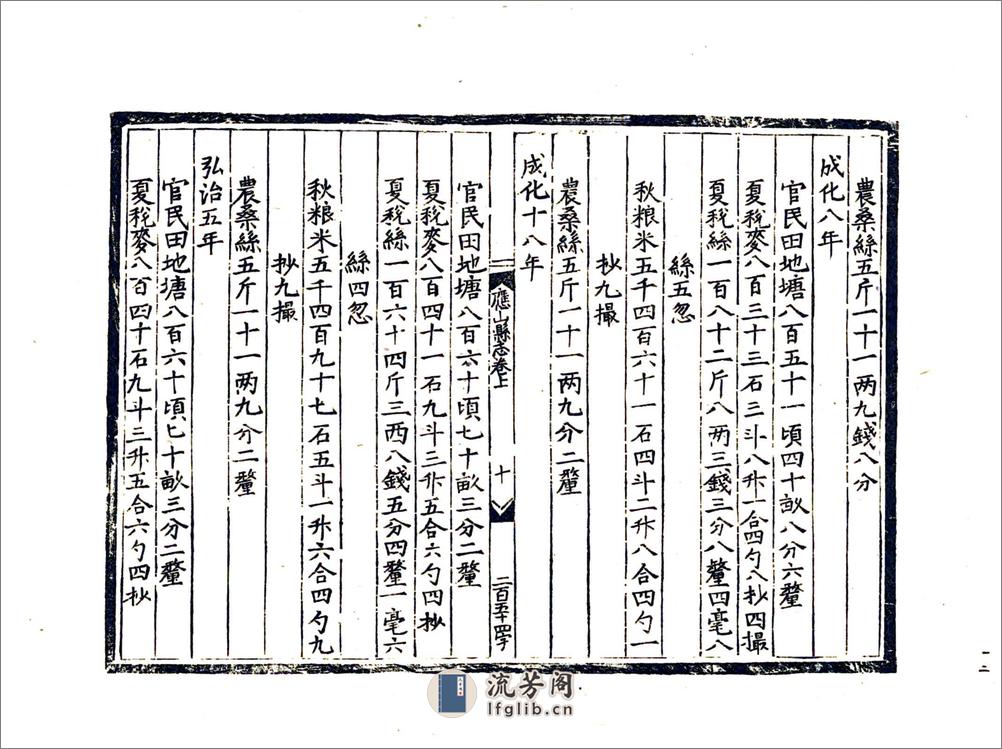 農桑絲五斤一十一两九錢八分
成化八年
官民田地塘八百五十一頃四十畝八分六釐
夏稅麥八百三十三石三斗八升一合四勺八抄四撮
夏稅絲一百八十二斤八两三錢三分八釐四毫八
絲五忽
秋粮米五千四百六十一石四斗二升八合四勺一
抄九撮
農桑絲五斤一十一两九分二釐
成化十八年
應山縣志卷上
十
二百五十四字
官民田地塘八百六十頃七十畝三分二釐
夏稅麥八百四十一石九斗三升五合六勺四抄
夏稅絲一百六十四斤三两八錢五分四釐一毫六
絲四忽
秋粮米五千四百九十七石五斗一升六合四勺九
抄九撮
農桑絲五斤一十一两九分二釐
弘治五年
官民田地塘八百六十頃七十畝三分二釐
夏稅麥八百四十石九斗三升五合六勺四抄
一二
流芳阁
lfglib.cn